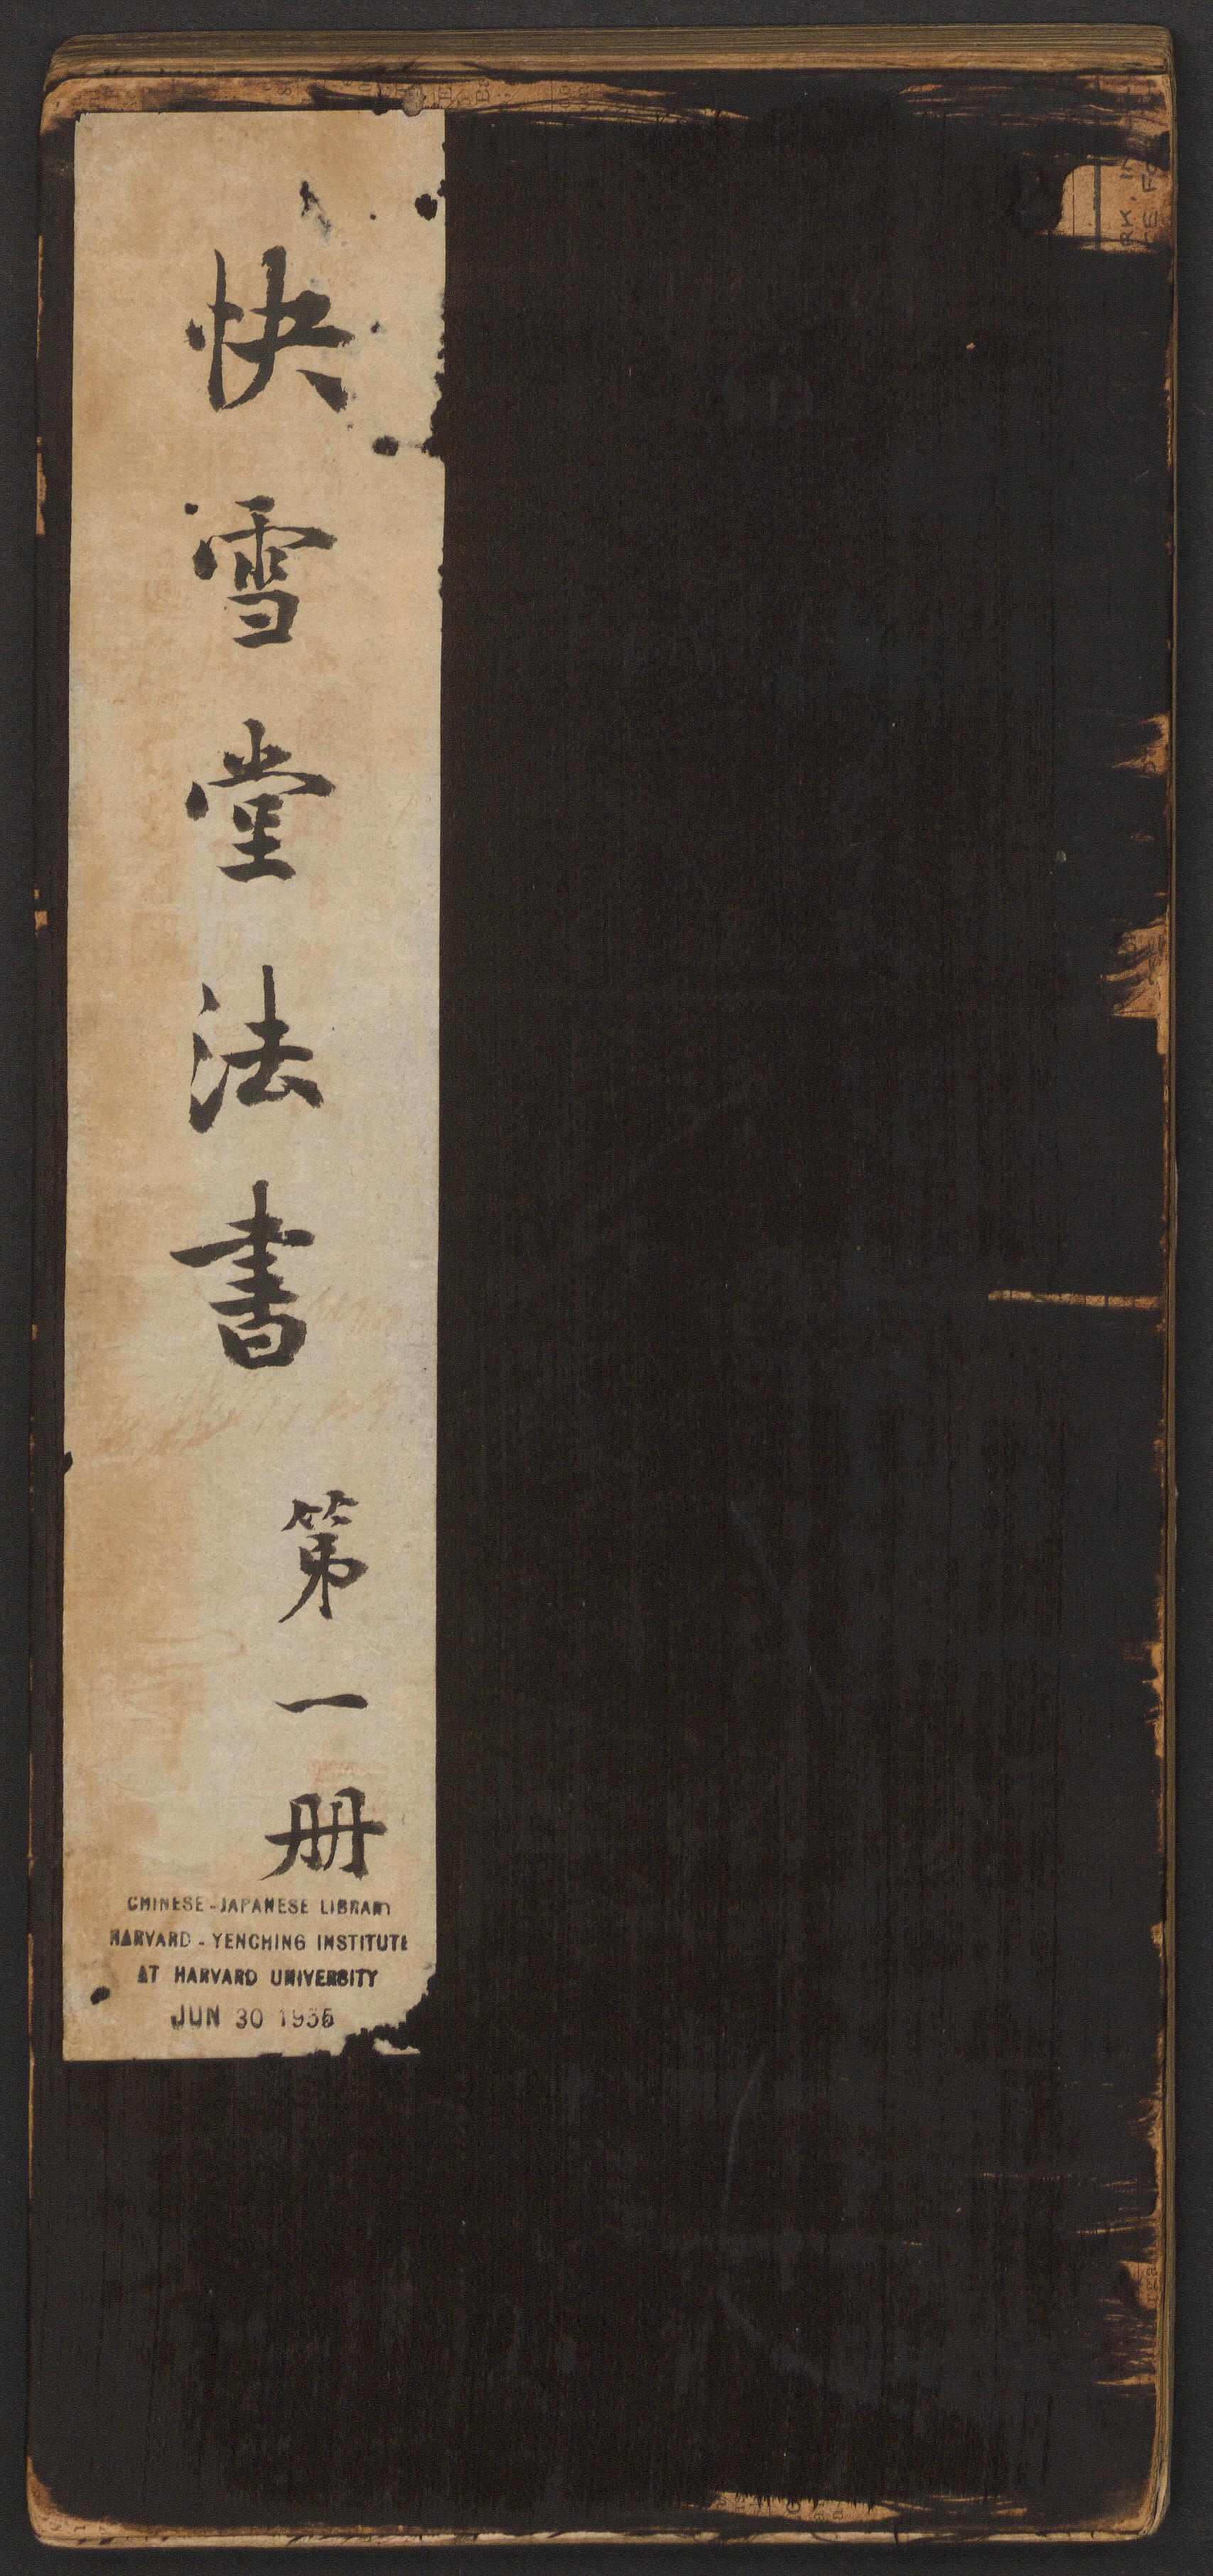 快雪堂法書
第一册
CHINESE-JAPANESE LIBRARY
HARVARD-YENCHING INSTITUTE
AT HARVARD UNIVERSITY
JUN 30 1936